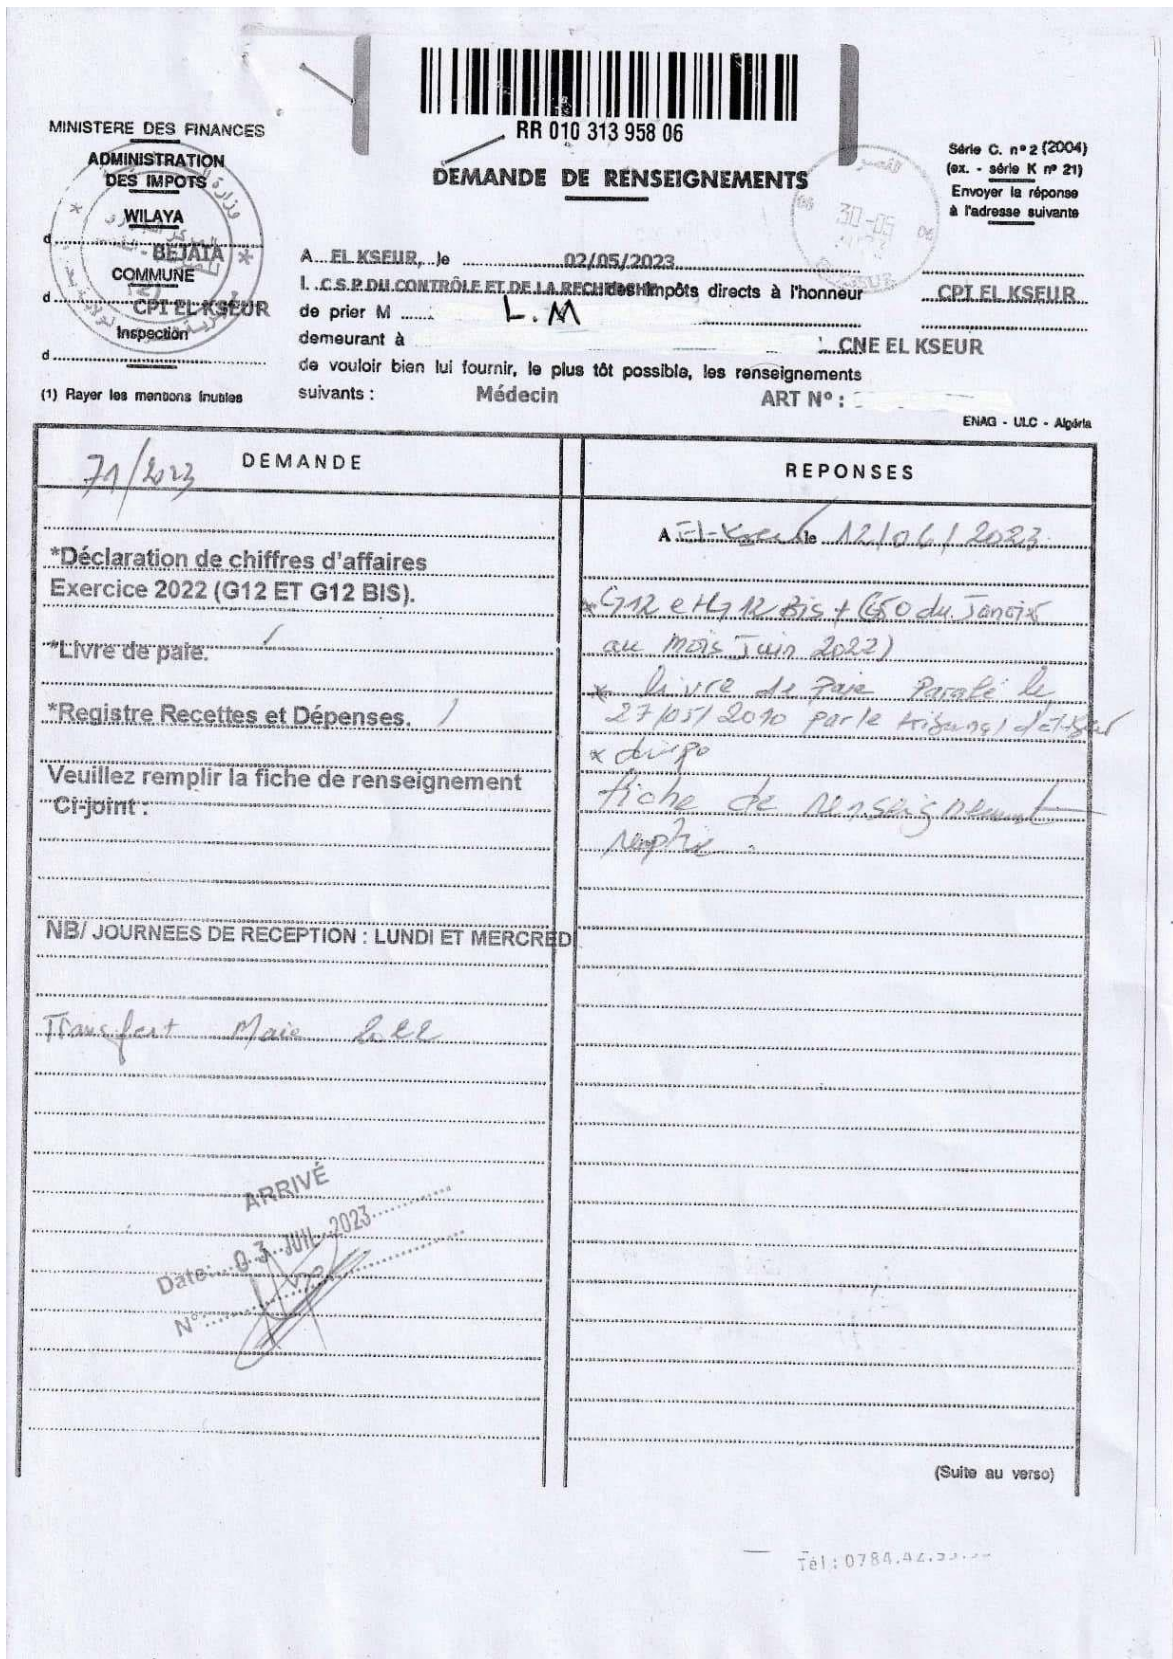 RR 010 313 958 06
MINISTERE DES FINANCES
ADMINISTRATION
DES IMPOTS
WILAYA
d BEJAIA
COMMUNE
d CPI EL KSEUR
Inspection
d
(1) Rayer les mentions inutiles
DEMANDE DE RENSEIGNEMENTS
Série C. nº 2 (2004)
(ex. - série K nº 21)
Envoyer la réponse
à l'adresse suivante
CPI EL KSEUR
30-05
A EL KSEUR, le 02/05/2023
L C.S.P. DU CONTRÔLE ET DE LA des impôts directs à l'honneur
de prier M L.M
demeurant à CNE EL KSEUR
de vouloir bien lui fournir, le plus tôt possible, les renseignements
suivants : Médecin ART Nº :
ENAG - ULC - Algérie
71/2023 DEMANDE
*Déclaration de chiffres d'affaires
Exercice 2022 (G12 ET G12 BIS).
*Livre de paie.
*Registre Recettes et Dépenses.
Veuillez remplir la fiche de renseignement
Ci-joint :
NB/ JOURNEES DE RECEPTION : LUNDI ET MERCREDI
Transfert
ARRIVÉ
Date: 03 JUIL 2023
N°:
REPONSES
A El-Kseur le 12/06/2023
* G12 et G12 Bis + G50 du
au mois Juin 2022)
* Livre de Paie Parafé le
27/05/2010 par le tribunal
*
fiche de renseignement
remplie.
(Suite au verso)
Tél : 0784.42.